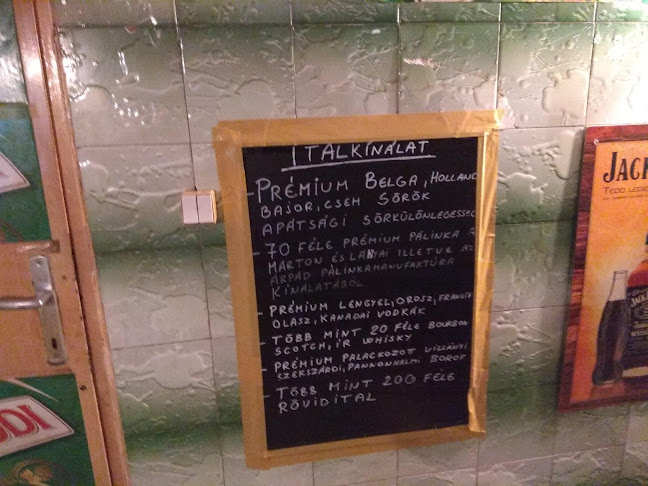 ITALKÍNÁLAT
- PRÉMIUM BELGA, HOLLAND
BAJOR, CSEH SÖRÖK
APÁTSÁGI SÖRKÜLÖNLEGESSÉG
- 70 FÉLE PRÉMIUM PÁLINKA A
MÁRTON ÉS LÁNYAI ILLETVE AZ
ÁRPÁD PÁLINKAMANUFAKTÚRA
KÍNÁLATÁBÓL
- PRÉMIUM LENGYEL, OROSZ, FRANCIA
OLASZ, KANADAI VODKÁK
- TÖBB MINT 20 FÉLE BOURBON
SCOTCH, ÍR WHISKY
- PRÉMIUM PALACKOZOTT VILLÁNYI
SZEKSZÁRDI, PANNONHALMI BOROK
- TÖBB MINT 200 FÉLE
RÖVIDITAL
JACK
TEDD